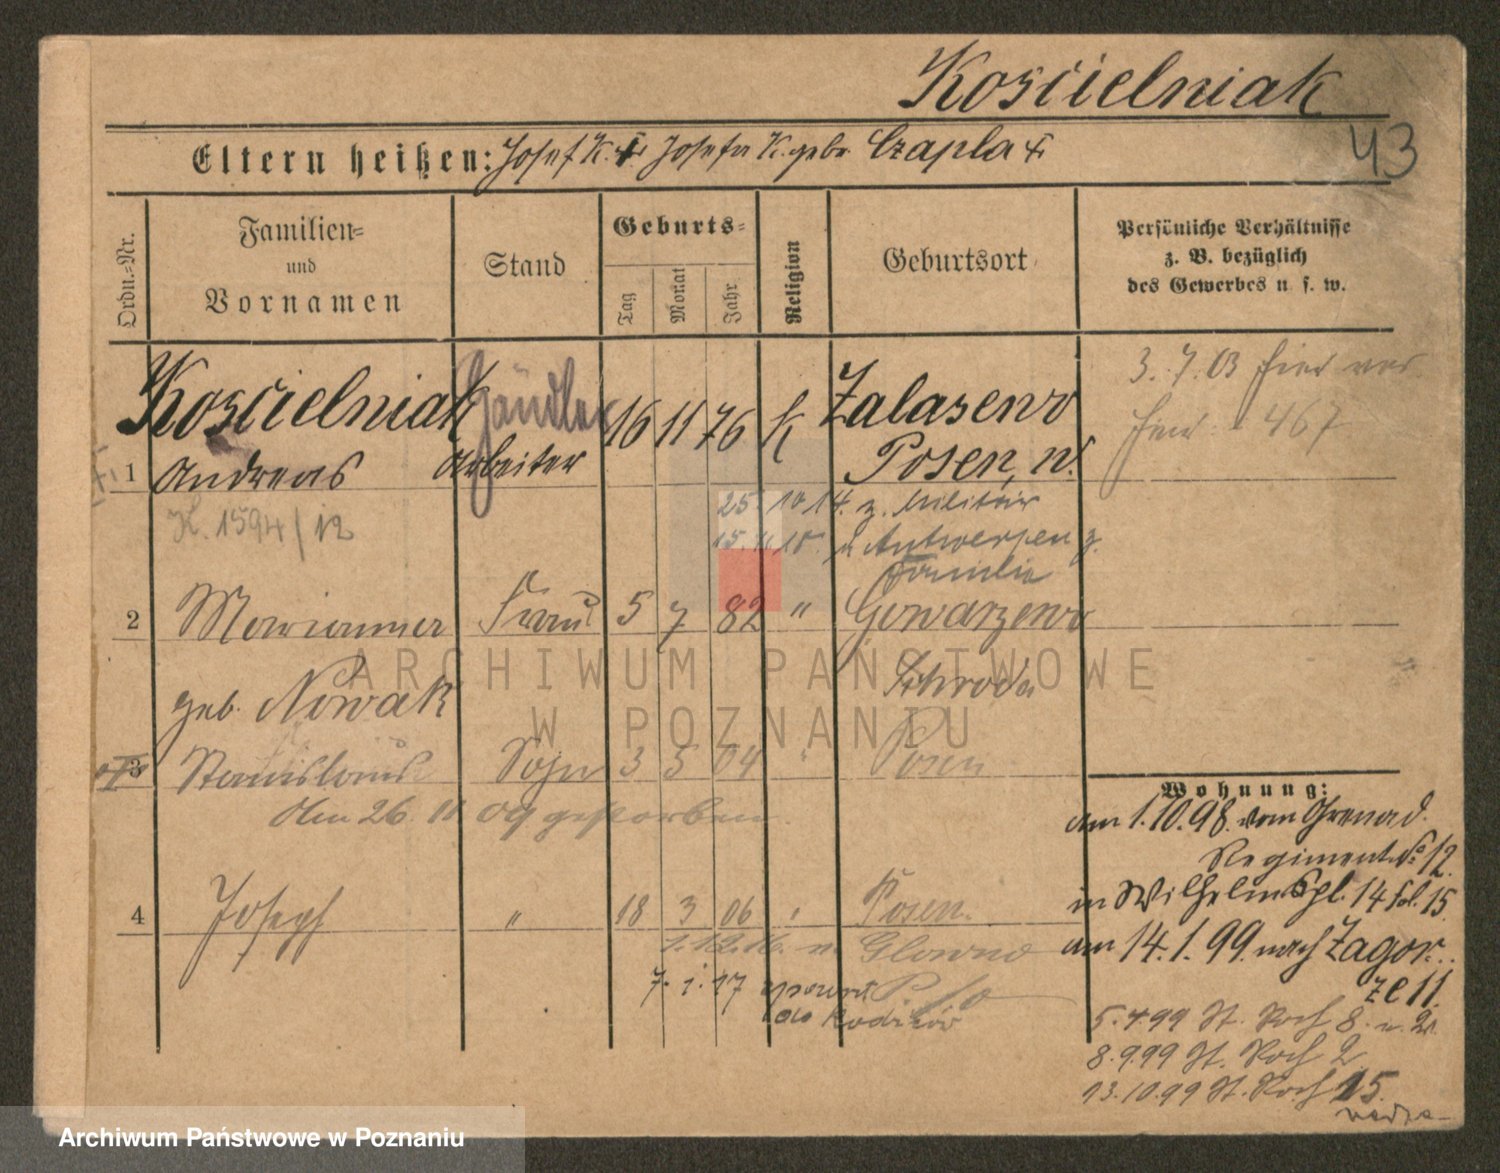 Kościelniak
43
Eltern heißen: Josef K. u. Josefa K. gebr. Czapla
Ordn.-Nr.
Familien-
und
Vornamen
Stand
Geburts-
Tag
Monat
Jahr
Religion
Geburtsort
Persönliche Verhältnisse
z. B. bezüglich
des Gewerbes u. s. w.
Kościelniak Händler 16 11 76 k Zalasewo
1 Andreas Arbeiter Posen, W.
3. 7. 03 hier
467
K. 1594/12
25. 10 14. z. Militär
15. 11. 15. Antwerpen z.
Familie
2 Marianna Frau 5 7 82 " Gowarzewo
geb. Nowak Schroda
3 Stanislaus Sohn 3 5 04 " Posen
Am 26. 11 09 gestorben.
4 Joseph " 18 3 06 " Posen.
1. 12. 16. n. Glowno
7. 1. 17
do Rodziców
Wohnung:
am 1. 10. 98. vom Grenad.
Regiment No 12.
in Wilhelmspl. 14 15.
am 14. 1. 99. nach Zagor..
ze 11.
5. 4 99 St. Roch 8. n. 2.
8. 9. 99 St. Roch 2
13. 10. 99 St. Roch 15.
ARCHIWUM PAŃSTWOWE
W POZNANIU
Archiwum Państwowe w Poznaniu